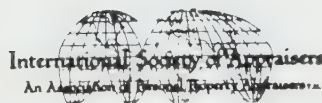 International Society of Appraisers
An Association of Personal Property Appraisers